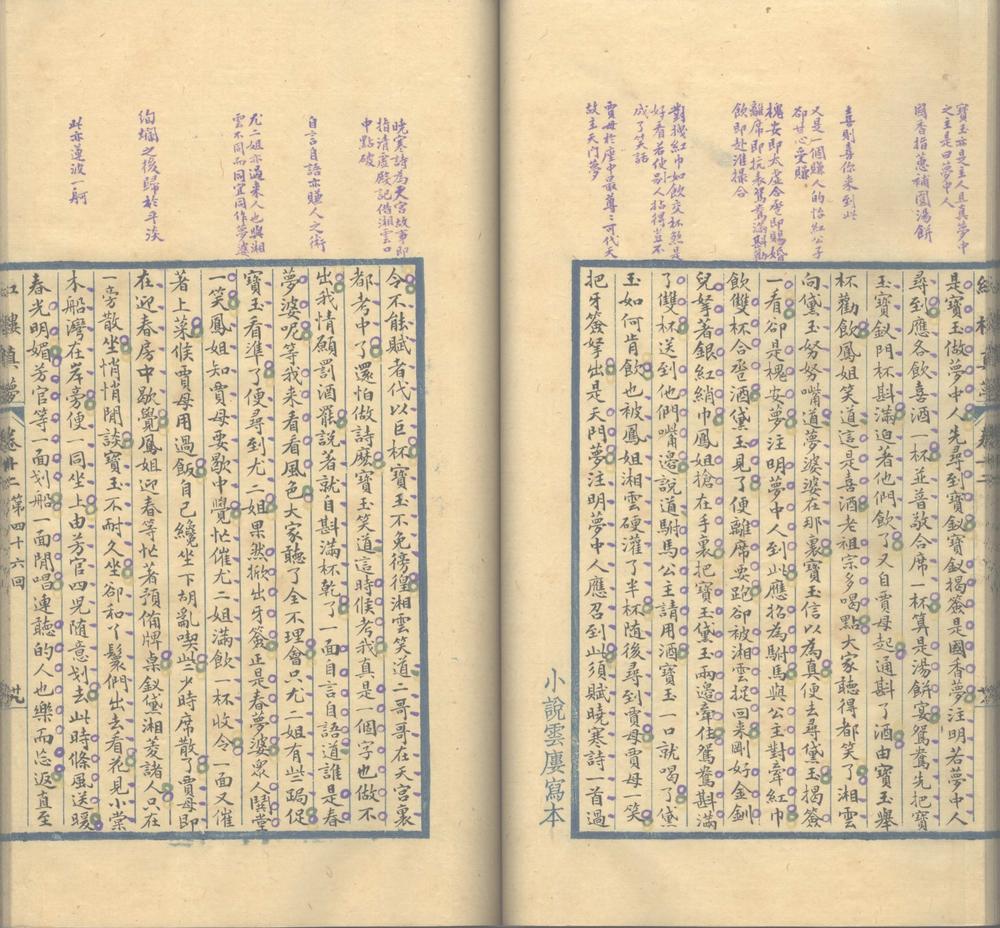 寶玉亦是主人且真夢中
之主是曰夢中人
國香指蕙補園湯餅
喜則喜你來到此
又是一個賺人的怡紅公子
卻甘心受賺
槐安即太虛合巹即賜婚
離席即抗表鴛鴦滿斟勸
飲即赴淮撮合
對襪紅巾如飲交杯煞是
好看若使別人拈得豈不
成了笑話
賈母於座中最尊之可代天
故主天門夢
是寶玉做夢中人先尋到寶釵寶釵揭簽是國香夢注明若夢中人
尋到應各飲喜酒一杯並普敬合席一杯算是湯餅宴鴛鴦先把寶
玉寶釵門杯斟滿迫著他們飲了又自賈母起通斟了酒由寶玉舉
杯勸飲鳳姐笑道這是喜酒老祖宗多喝點大家聽得都笑了湘雲
向黛玉努努嘴道夢婆婆在那裏寶玉信以為真便去尋黛玉揭簽
一看卻是槐安夢注明夢中人到此應招為駙馬與公主對牽紅巾
飲雙杯合巹酒黛玉見了便離席要跑卻被湘雲捉回來剛好金釧
兒拏著銀紅綃巾鳳姐搶在手裏把寶玉黛玉兩邊牽住鴛鴦斟滿
了雙杯送到他們嘴邊說道駙馬公主請用酒寶玉一口就喝了黛
玉如何肯飲也被鳳姐湘雲硬灌了半杯隨後尋到賈母賈母一笑
把牙簽拏出是天門夢注明夢中人應召到此須賦曉寒詩一首過
小說雲廔寫本
曉寒詩為天宮故事即
指清虛殿記借湘雲口
中點破
自言自語亦賺人之術
尤二姐亦過來人也與湘
雲不同而同宜同作夢婆
絢爛之後歸於平淡
此亦蓮波一舸
令不能賦者代以巨杯寶玉不免徬徨湘雲笑道二哥哥在天宮裏
都考中了還怕做詩麼寶玉笑道這時候考我真是一個字也做不
出我情願罰酒罷說著就自斟滿杯乾了一面自言自語道誰是春
夢婆呢等我來看看風色大家聽了全不理會只尤二姐有些跼促
寶玉看準了便尋到尤二姐果然掀出牙簽正是春夢婆眾人鬨堂
一笑鳳姐知賈母要歇中覺忙催尤二姐滿飲一杯收令一面又催
著上菜候賈母用過飯自己纔坐下胡亂喫些少時席散了賈母即
在迎春房中歇覺鳳姐迎春等忙著預備牌桌釵黛湘菱諸人只在
一旁散坐悄悄閒談寶玉不耐久坐卻和丫鬟們出去看花見小棠
木船灣在岸旁便一同坐上由芳官四兒隨意划去此時條風送暖
春光明媚芳官等一面划船一面閒唱連聽的人也樂而忘返直至
紅樓真夢 卷廿二 第四十六回 廿九